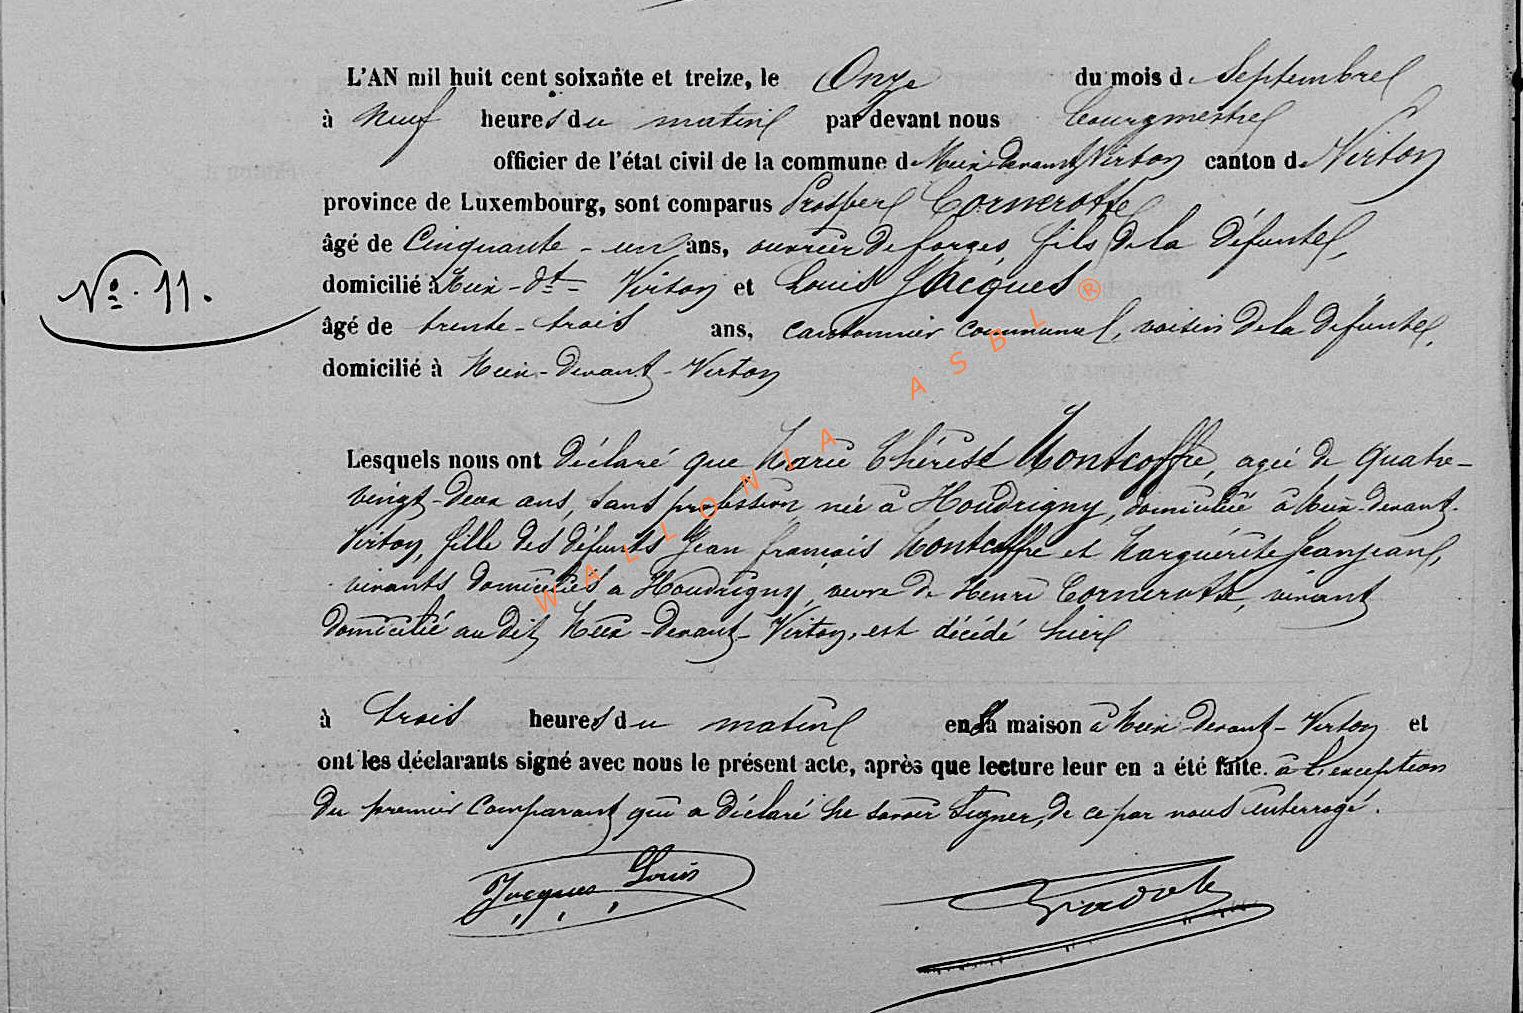 L'AN mil huit cent soixante et treize, le Onze du mois de Septembre
à Neuf heures du matin par devant nous bourgmestre
officier de l'état civil de la commune de Meix-devant-Virton canton de Virton
province de Luxembourg, sont comparus Prosper Cornerotte
âgé de Cinquante-un ans, ouvrier de forges fils de la défunte,
domicilié à Meix-dt-Virton et Louis Jacques
Nº. 11.
âgé de trente-trois ans, cantonnier communal, voisin de la défunte,
domicilié à Meix-devant-Virton
Lesquels nous ont déclaré que Marie Thérèse Montcoffre, agée de quatre-
vingt-deux ans, sans profession, née à Houdrigny, domiciliée à Meix-devant-
Virton, fille des défunts Jean françois Montcoffre et Marguérite Jeanjean,
vivants domiciliés à Houdrigny, veuve de Henri Cornerotte, vivant
domicilié au dit Meix-devant-Virton, est décédé hier
à trois heures du matin en Sa maison à Meix-devant-Virton et
ont les déclarants signé avec nous le présent acte, après que lecture leur en a été faite. à l'exception
du premier comparant qui a déclaré ne savoir Signer, de ce par nous interrogé.
Jacques Louis
WALLONIA ASBL ®